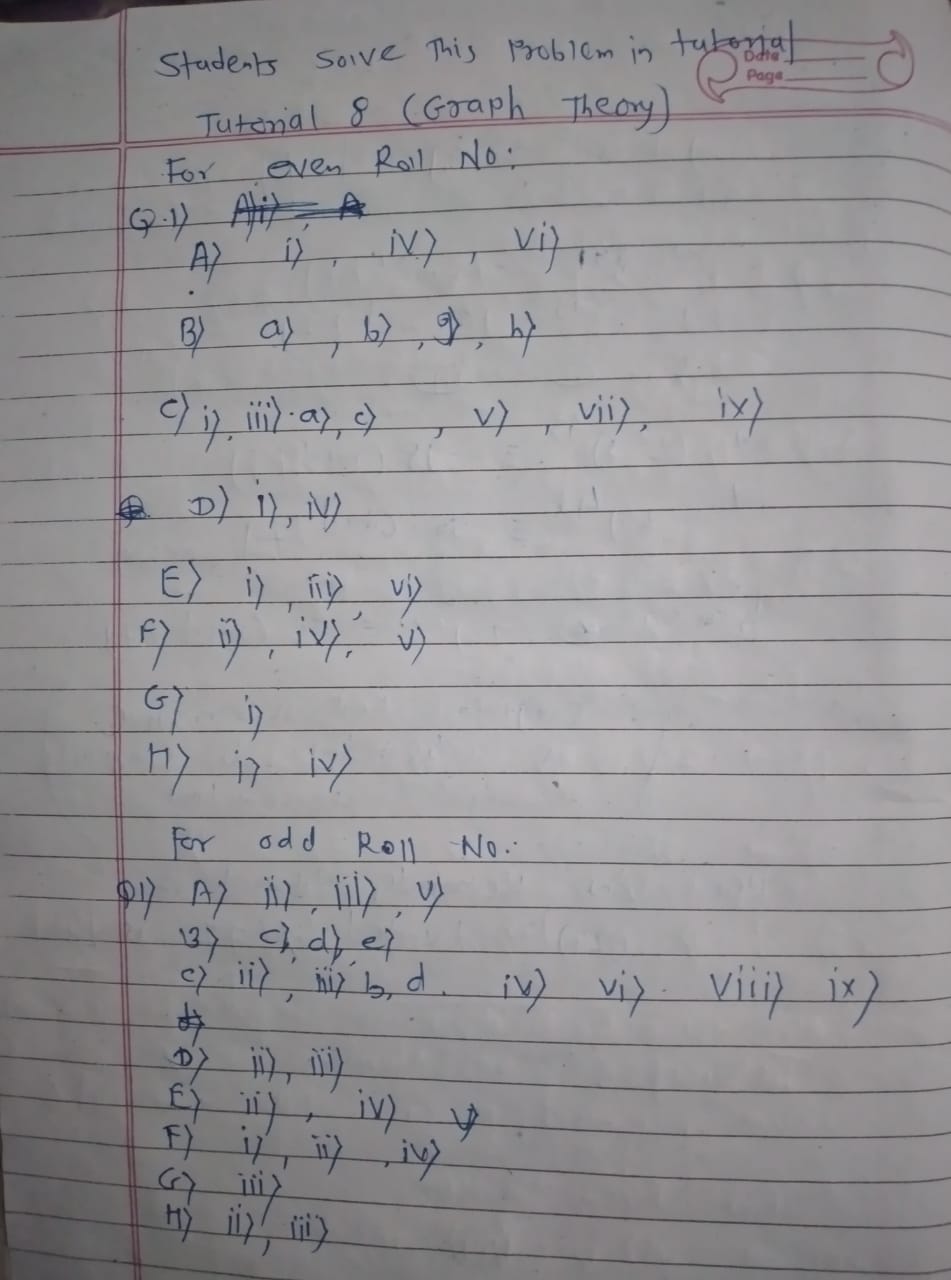 Students solve This Problem in tutorial
Date
Page
Tutorial 8 (Graph Theory)
For even Roll No:
Q.1)
A) i), iv), vi),
B) a), b), g), h)
C) i), iii) a), c), v), vii), ix)
D) i), iv)
E) i), iii), vi)
F) ii), iv), v)
G) i)
H) i) iv)
For odd Roll No.
Q1) A) ii), iii), v)
B) c), d), e)
c) ii), iii) b, d. iv) vi) viii) ix)
D) ii), iii)
E) ii), iv) v)
F) i), ii), iv)
G) iii)
H) ii), iii)